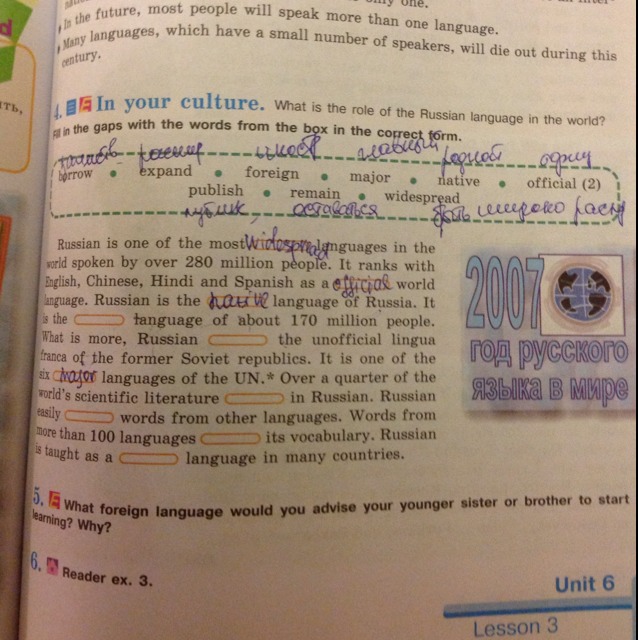 only one.
In the future, most people will speak more than one language.
Many languages, which have a small number of speakers, will die out during this
century.
4. E In your culture. What is the role of the Russian language in the world?
Fill in the gaps with the words from the box in the correct form.
главный родной офиц
borrow • expand • foreign • major • native • official (2)
publish • remain • widespread
публик, оставаться быть широко расп
Russian is one of the most widespread languages in the
world spoken by over 280 million people. It ranks with
English, Chinese, Hindi and Spanish as a official world
language. Russian is the native language of Russia. It
is the language of about 170 million people.
What is more, Russian the unofficial lingua
franca of the former Soviet republics. It is one of the
six major languages of the UN.* Over a quarter of the
world's scientific literature in Russian. Russian
easily words from other languages. Words from
more than 100 languages its vocabulary. Russian
is taught as a language in many countries.
2007
год русского
языка в мире
5. E What foreign language would you advise your younger sister or brother to start
learning? Why?
6. Reader ex. 3.
Unit 6
Lesson 3